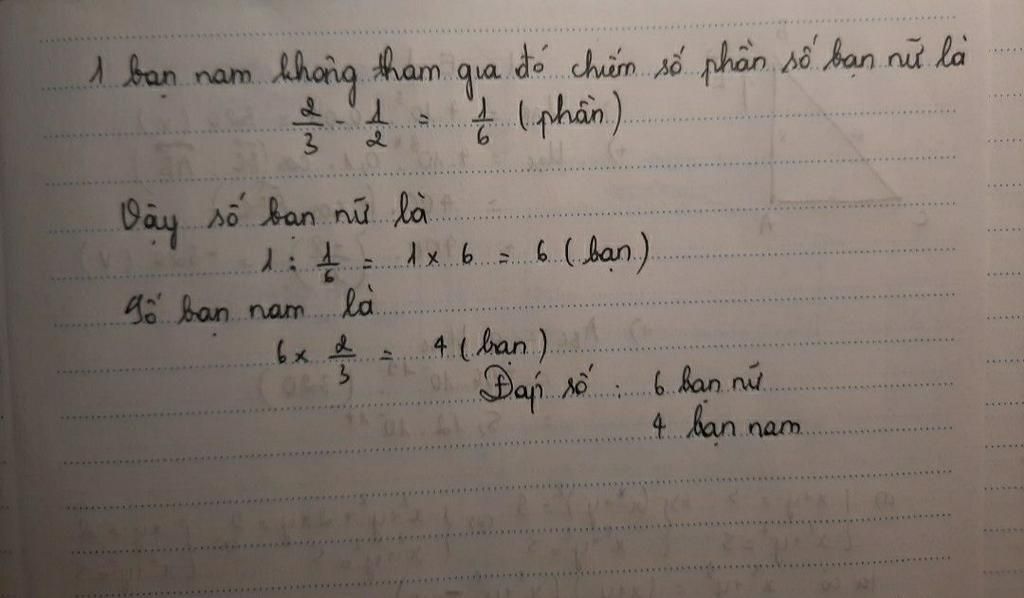 1 bạn nam không tham gia đó chiếm số phần số bạn nữ là
2/3 - 1/2 = 1/6 (phần)
Vậy số bạn nữ là
1 : 1/6 = 1 x 6 = 6 (bạn)
Số bạn nam là
6 x 2/3 = 4 (bạn)
Đáp số : 6 bạn nữ
4 bạn nam